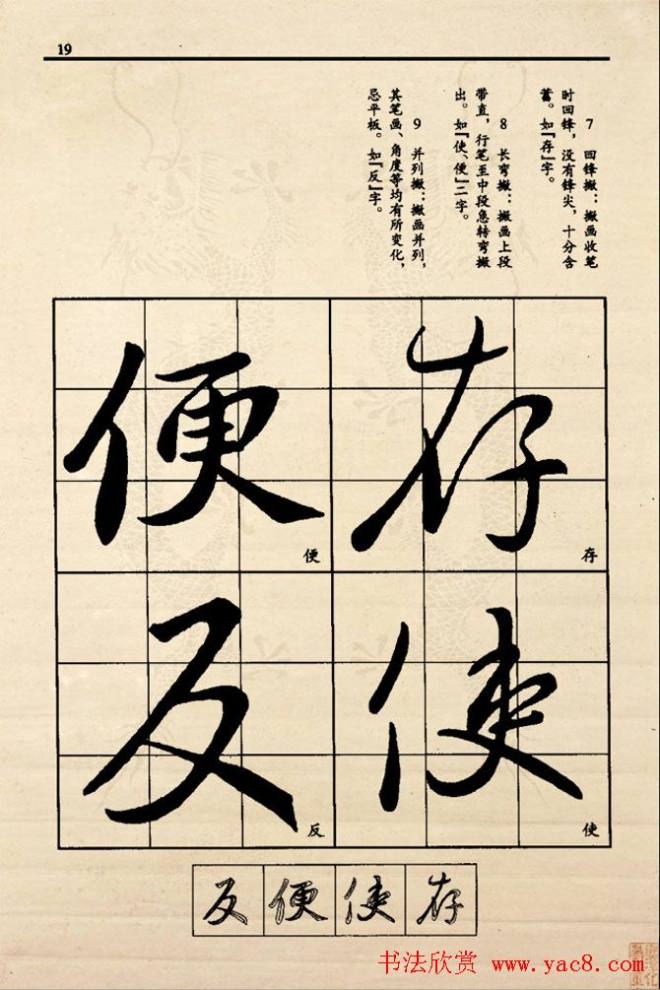 19
7 回锋撇：撇画收笔
时回锋，没有锋尖，十分含
蓄。如“存”字。
8 长弯撇：撇画上段
带直，行笔至中段急转弯撇
出。如“使、便”二字。
9 并列撇：撇画并列，
其笔画、角度等均有所变化，
忌平板。如“反”字。
存
存
使
使
便
便
反
反
反便使存
书法欣赏 www.yac8.com